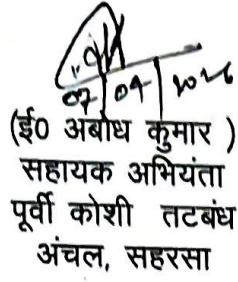 07/04/2026
(ई0 अबोध कुमार )
सहायक अभियंता
पूर्वी कोशी तटबंध
अंचल, सहरसा